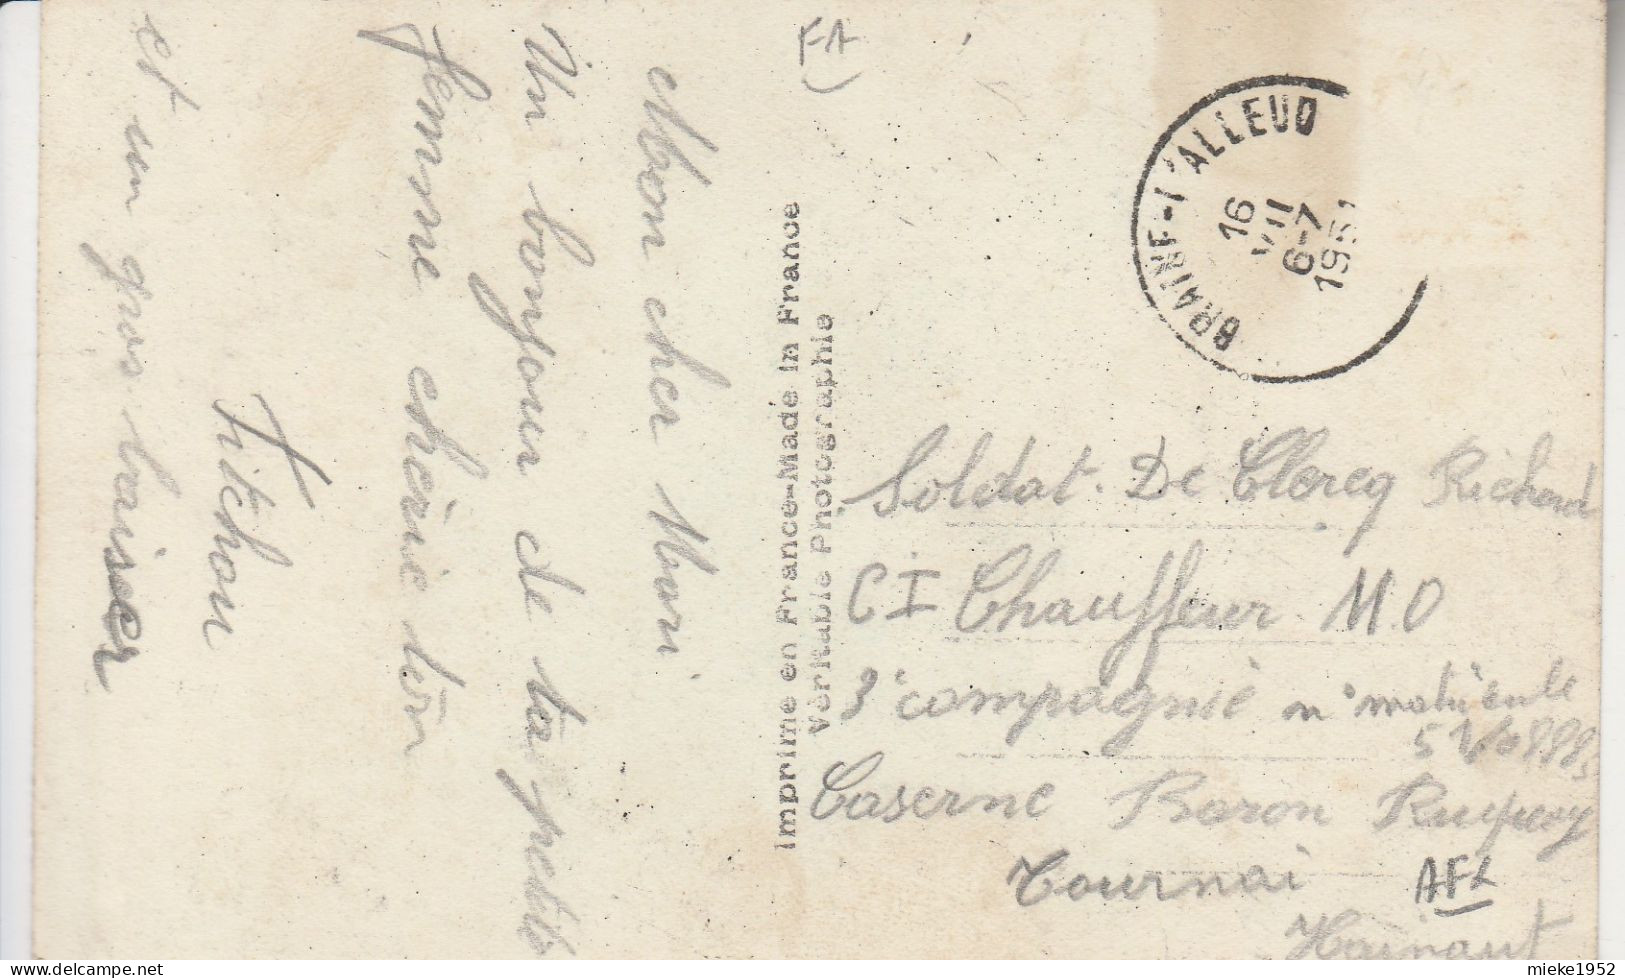 FA
Mon cher Mari
Un bonjour de ta petite
femme chérie
Fifchon
et un gros baiser
Imprimé en France-Made in France
Véritable Photographie
BRAINE-L'ALLEUD
16
VII
6-7
1951
Soldat. De Clercq Richard
CI Chauffeur M.O
3° compagnie n° matricule
Caserne Baron Ruquoy
Tournai
AFL
Hainaut
mieke1952